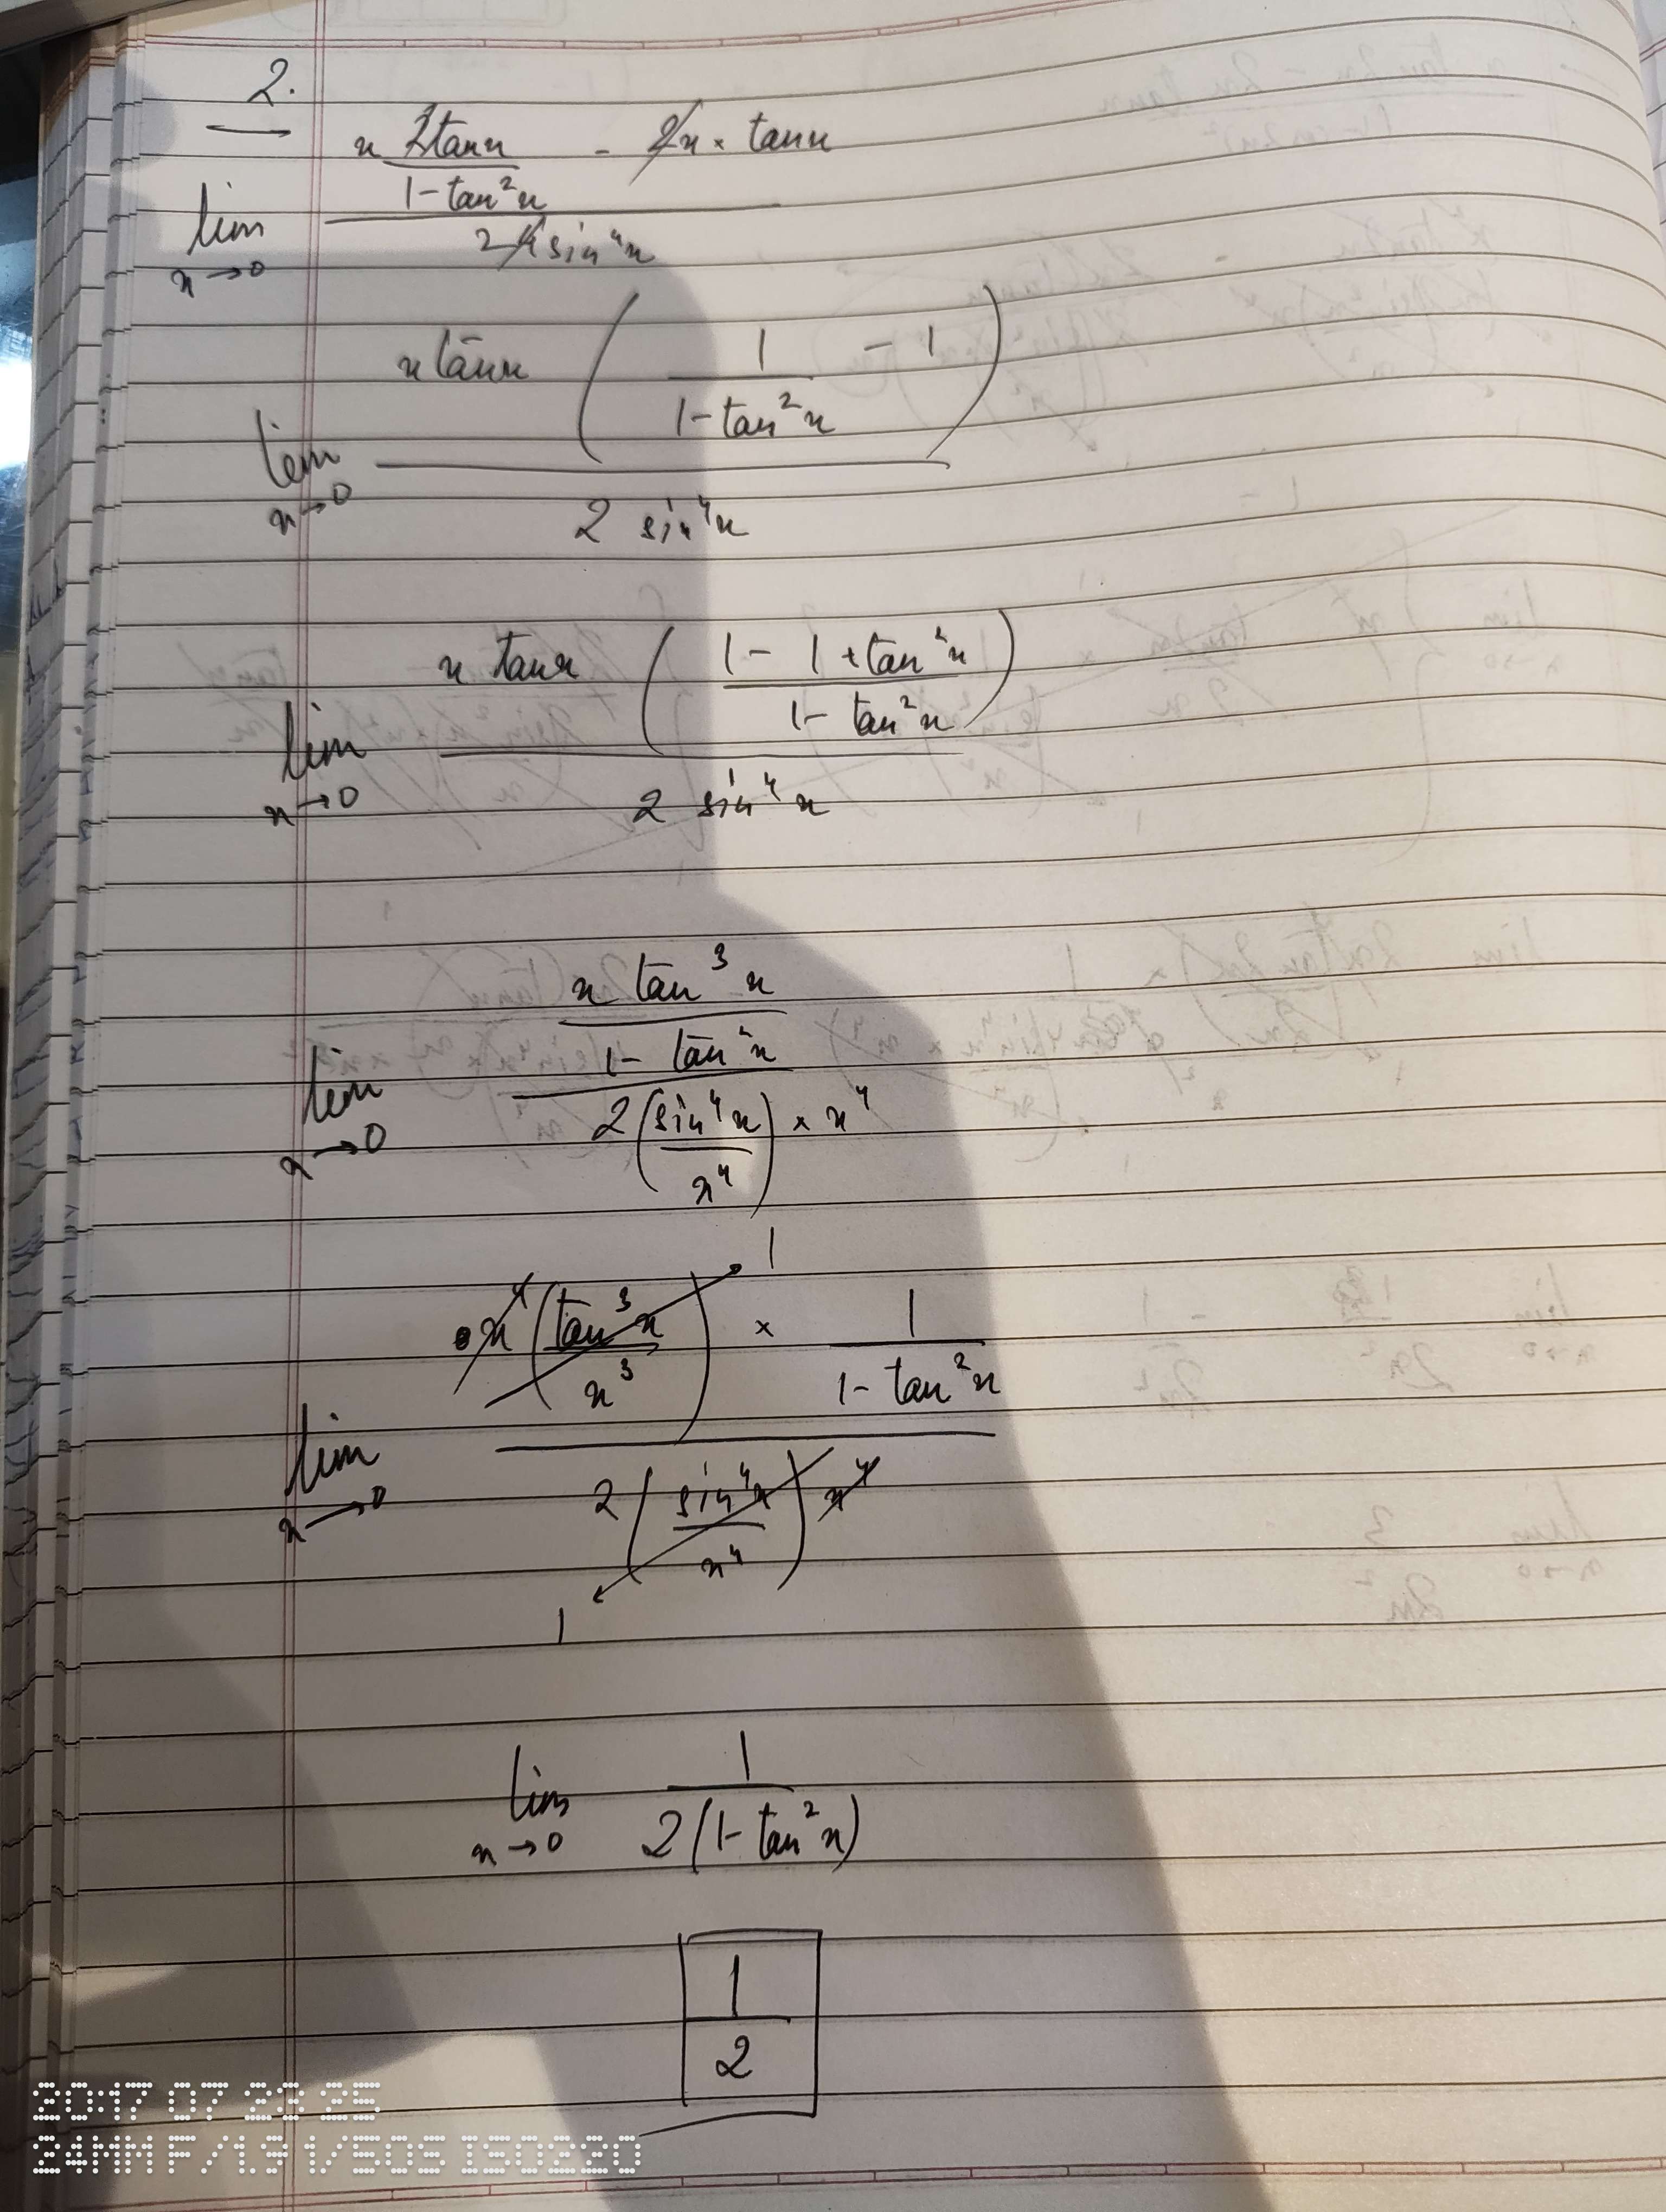 2.
lim x→0 (x 2tanx/(1-tan²x) - 2x × tanx) / (2 4 sin⁴x)
lim x→0 xtanx (1/(1-tan²x) - 1) / (2 sin⁴x)
lim x→0 x tanx ((1 - 1 + tan²x)/(1 - tan²x)) / (2 sin⁴x)
lim x→0 (x tan³x/(1 - tan²x)) / (2 (sin⁴x/x⁴) × x⁴)
lim x→0 (x⁴ (tan³x/x³) 1 × 1/(1 - tan²x)) / (2 (sin⁴x/x⁴) x⁴)
1
lim x→0 1/(2(1 - tan²x))
1/2
20:17 07 23 25
24MM F/1.9 1/50S ISO220